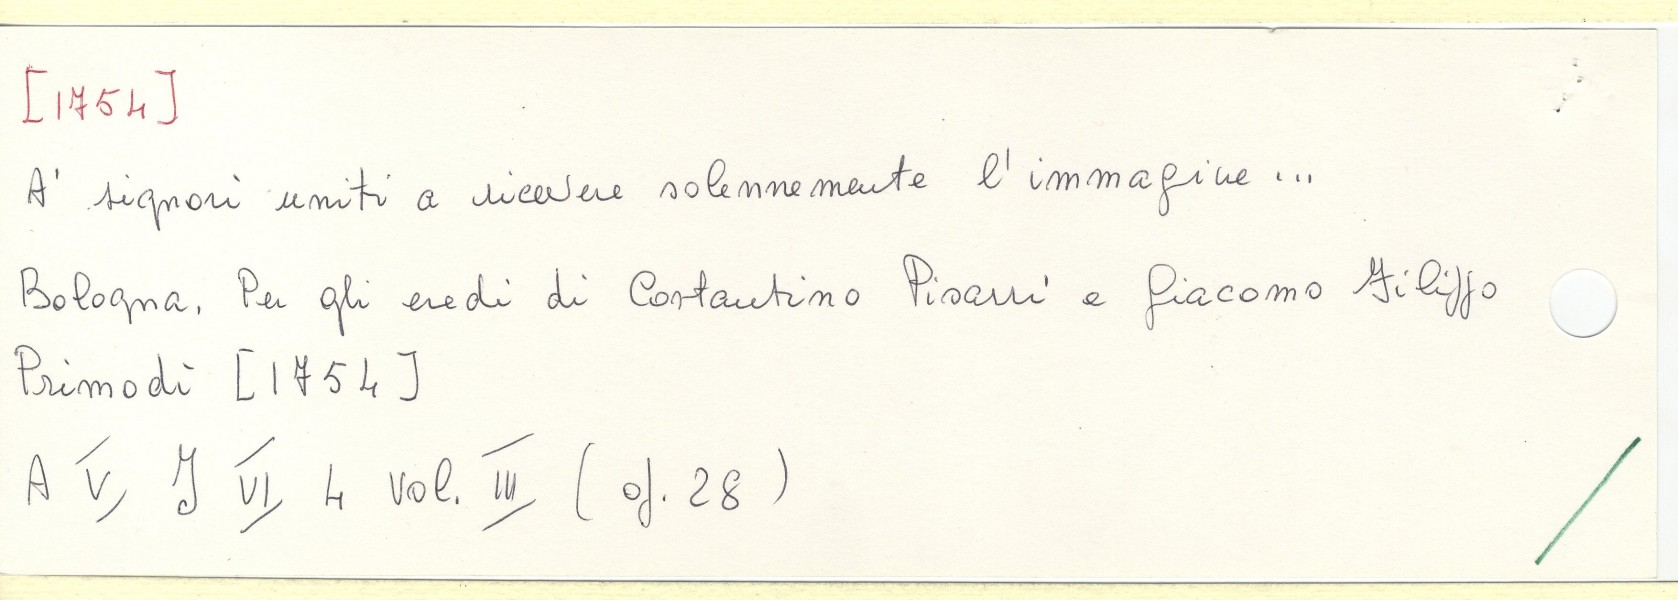 [1754]
A' signori uniti a ricevere solennemente l'immagine...
Bologna. Per gli eredi di Costantino Pisarri e Giacomo Filippo
Primodì [1754]
A V, J VI 4 vol. III ( of. 28 )